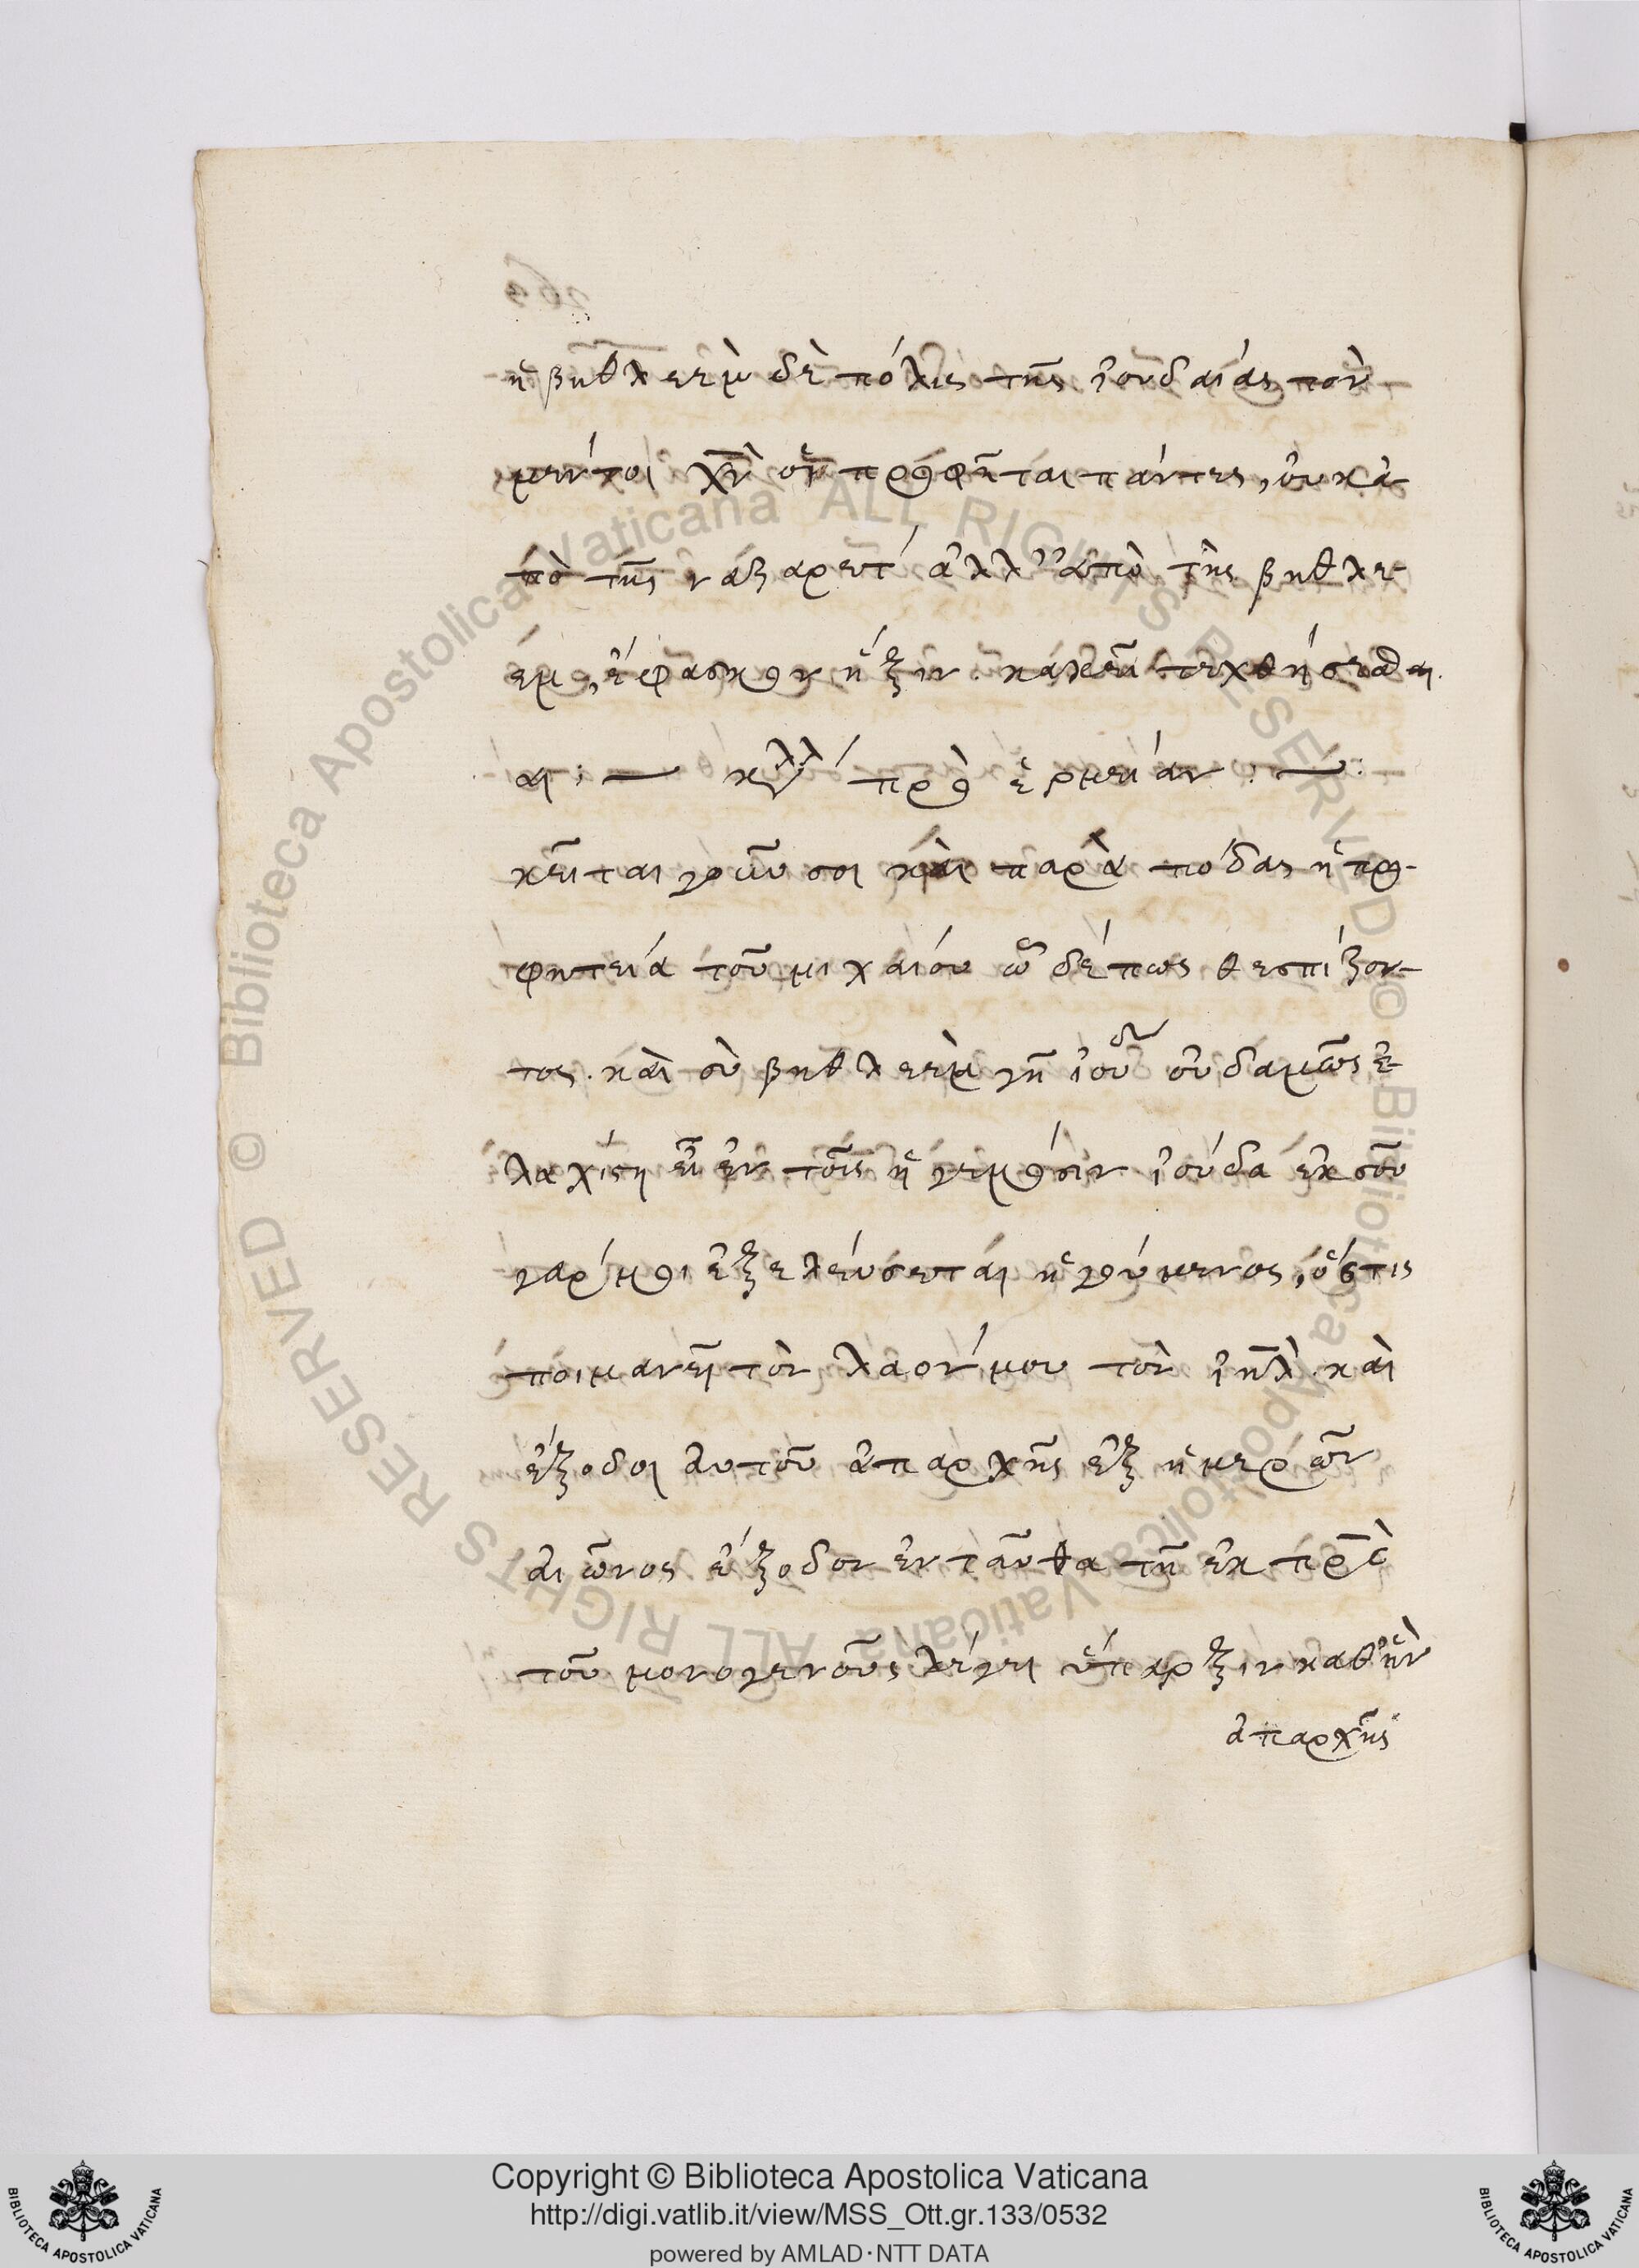 ἡ βηθλεὲμ δὲ πόλις τῆς ἰουδαίας τὸν
μέντοι χν̅ οἱ προφῆται πάντες, οὐκ ἀ-
πὸ τῆς ναζαρετ' ἀλλ' ἀπὸ τῆς βηθλε-
έμ, ἔφασκον ἥξειν καὶ τεχθήσεσθαι.
αι :— κυλλ' πρὸ ἑρμείαν :—
κεῖται γοῦν σοι καὶ παρὰ πόδας ἡ προ-
φητεία τοῦ μιχαίου ὧδέ πως θεσπίζον-
τος. καὶ σὺ βηθλεὲμ γῆ ἰουδ οὐδαμῶς ἐ-
λαχίστη εἶ ἐν τοῖς ἡγεμόσιν ἰούδα ἐκ σοῦ
γάρ μοι ἐξελεύσεται ἡγούμενος, ὅστις
ποιμανεῖ τὸν λαόν μου τὸν ιηλ̅. καὶ
ἔξοδοι αὐτοῦ ἀπαρχῆς ἐξ ἡμερῶν
αἰῶνος ἔξοδον ἐνταῦθα τὴ ἐκ πρ̅ς
τοῦ μονογενοῦς λέγει ὕπαρξιν καθ' ἣν
ἀπαρχῆς
Copyright © Biblioteca Apostolica Vaticana
http://digi.vatlib.it/view/MSS_Ott.gr.133/0532
powered by AMLAD·NTT DATA
BIBLIOTECA APOSTOLICA VATICANA
BIBLIOTECA APOSTOLICA VATICANA
© Biblioteca Apostolica Vaticana ALL RIGHTS RESERVED © Biblioteca Apostolica Vaticana ALL RIGHTS RESERVED